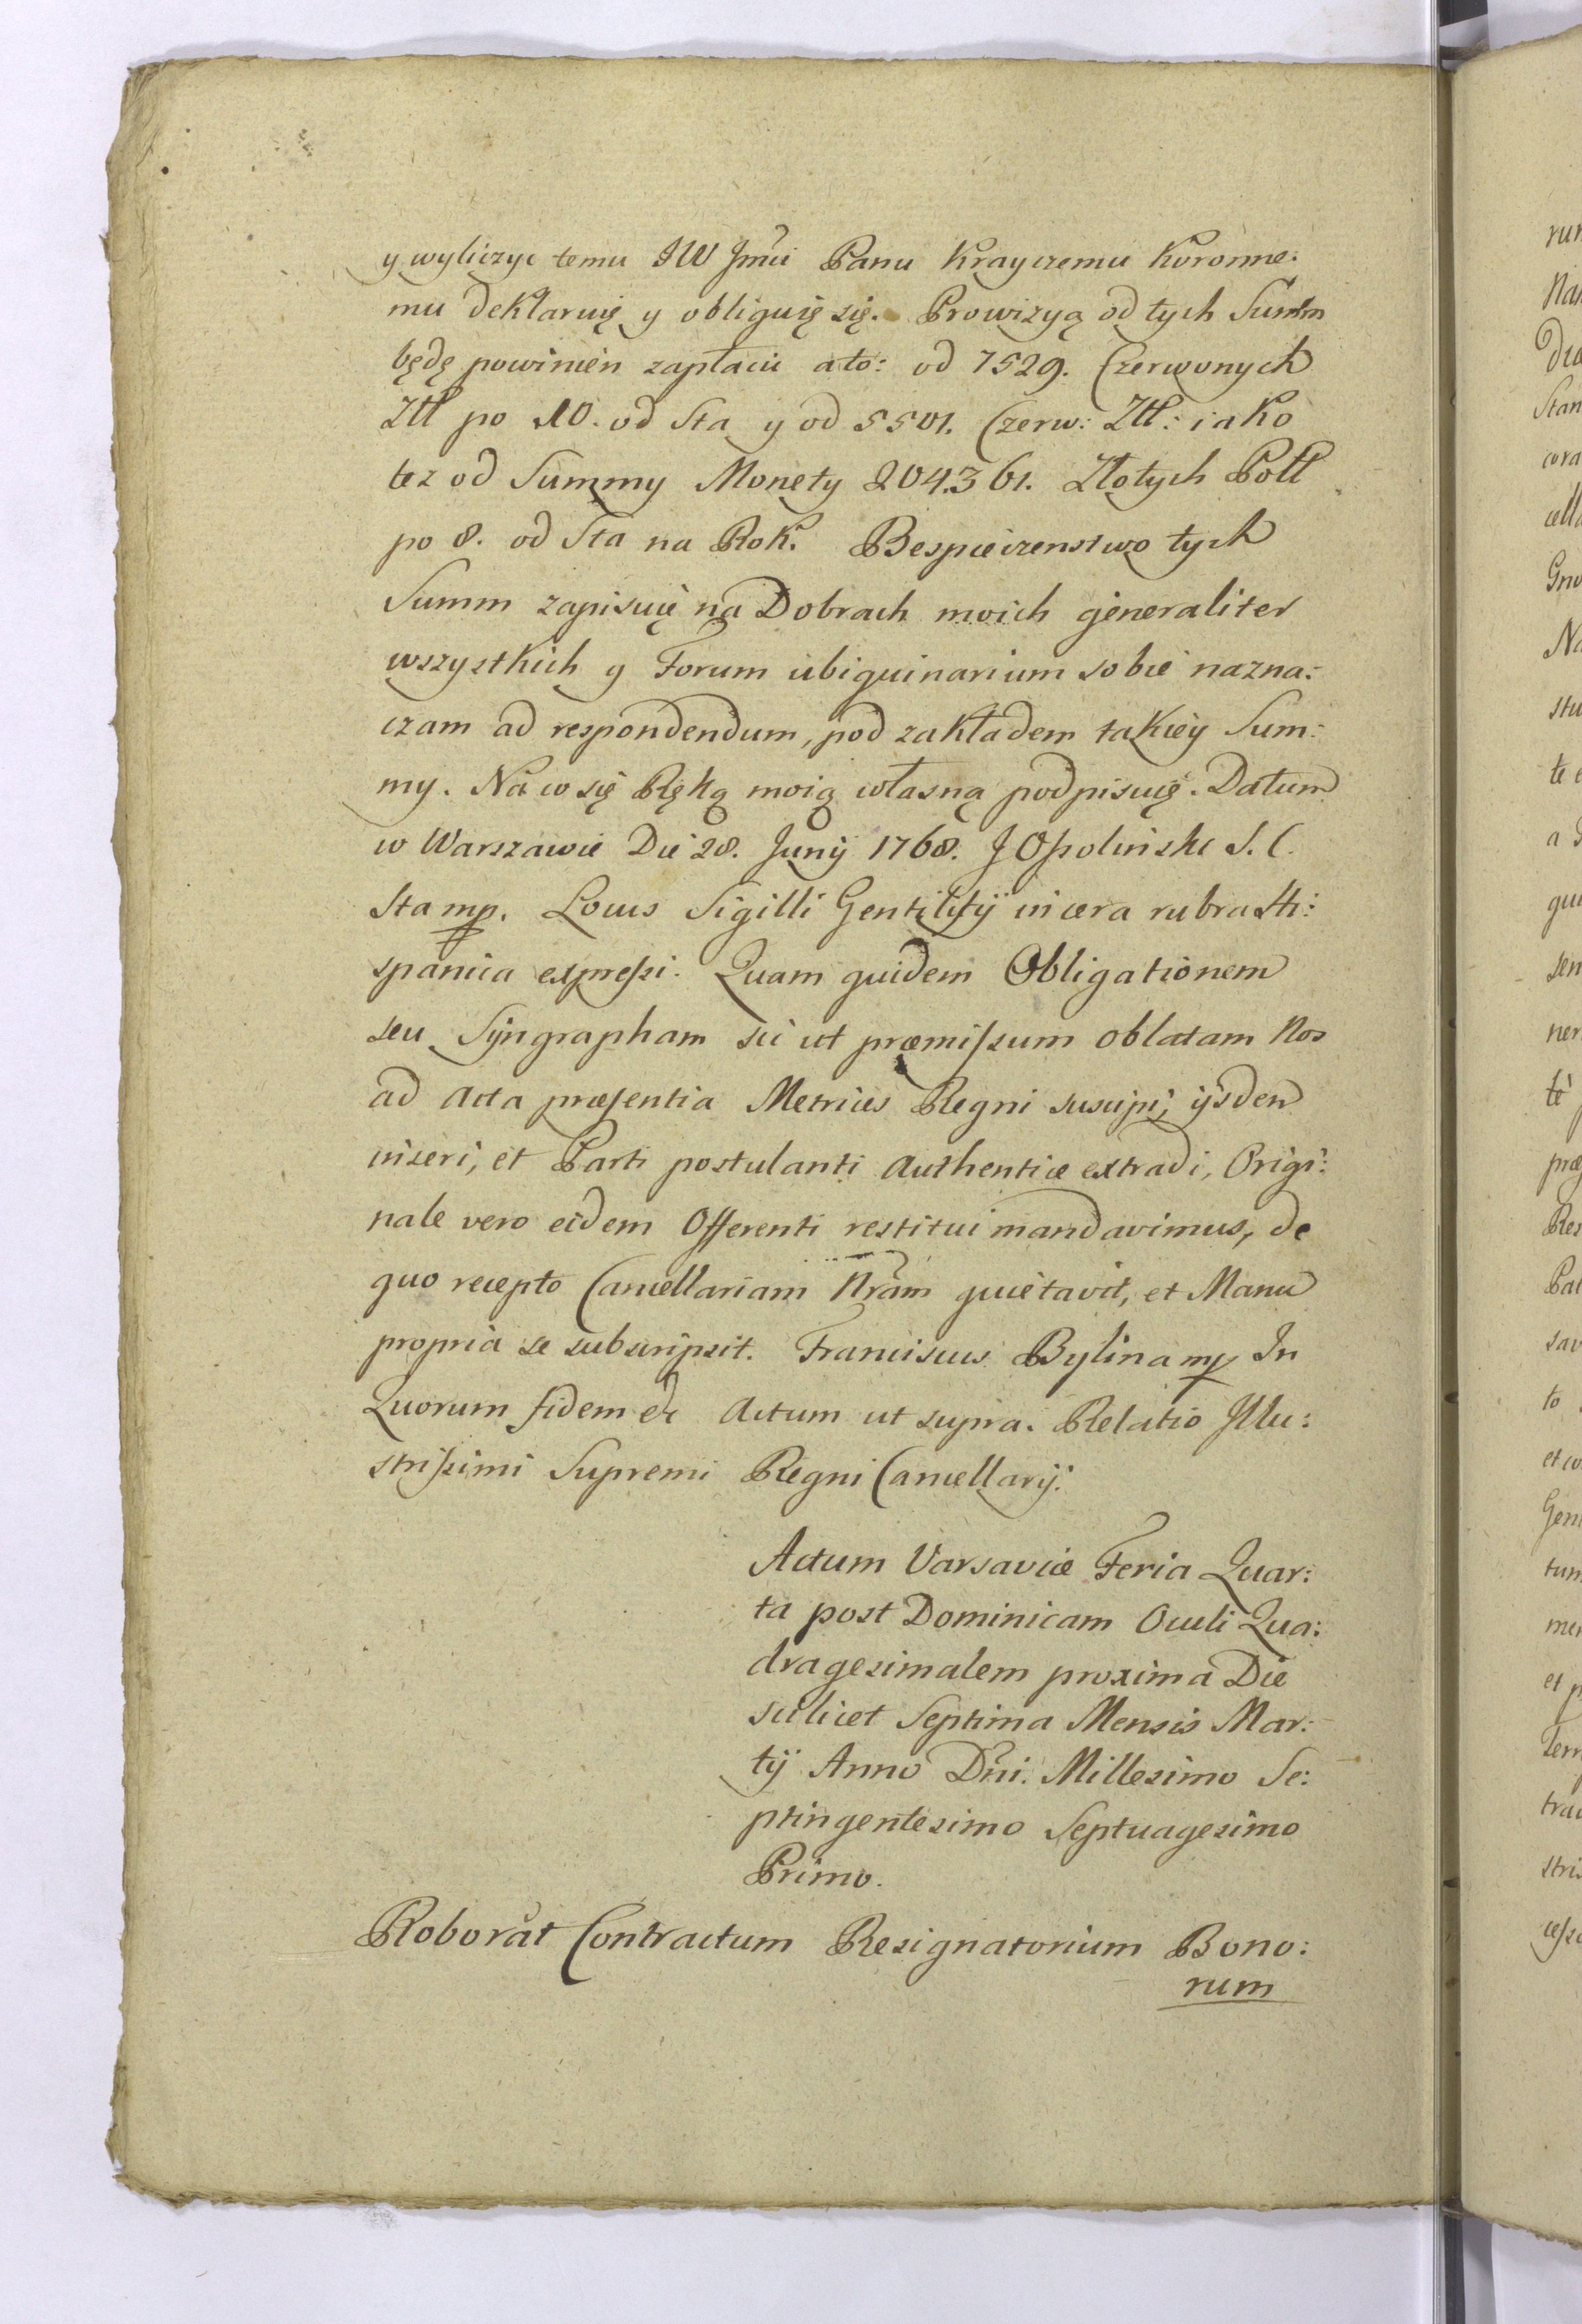 y wyliczyc temu JW Jmći Panu Krayczemu Koronne:
mu deklaruię y obliguię się. Prowizyą od tych Summ
będę powinien zapłacić a to: od 7529. Czerwonych
Złł po 10. od Sta y od 5501. Czerw: Złł: iako
tez od Summy Monety 204.361. Złotych Poll
po 8. od Sta na Rok. Bespieczenstwo tych
Summ zapisuię na Dobrach moich generaliter
wszystkich y Forum ubiquinarium sobie nazna:
czam ad respondendum, pod zakładem takiey Sum:
my. Na co się Ręką moią własną podpisuię. Datum
w Warszawie Die 28. Junij 1768. J Opolinski S. C.
Sta mp. Locus Sigilli Gentilitij in cera rubra Hi:
spanica expressi. Quam quidem Obligationem
seu Syngrapham sic ut præmissum oblatam Nos
ad Acta præsentia Metrices Regni suscipi, ijsdem
inseri, et Parti postulanti Authentice extradi, Origi:
nale vero eidem Offerenti restitui mandavimus, de
quo recepto Cancellariam Nram quietavit, et Manu
propria se subscripsit. Franciscus Bylina mp In
Quorum fidem etc Actum ut supra. Relatio Illu:
strissimi Supremi Regni Cancellarij.
Actum Varsaviæ Feria Quar:
ta post Dominicam Oculi Qua:
dragesimalem proxima Die
scilicet Septima Mensis Mar:
tij Anno Dni. Millesimo Se:
ptingentesimo Septuagesimo
Primo.
Roborat Contractum Resignatorium Bono:
rum